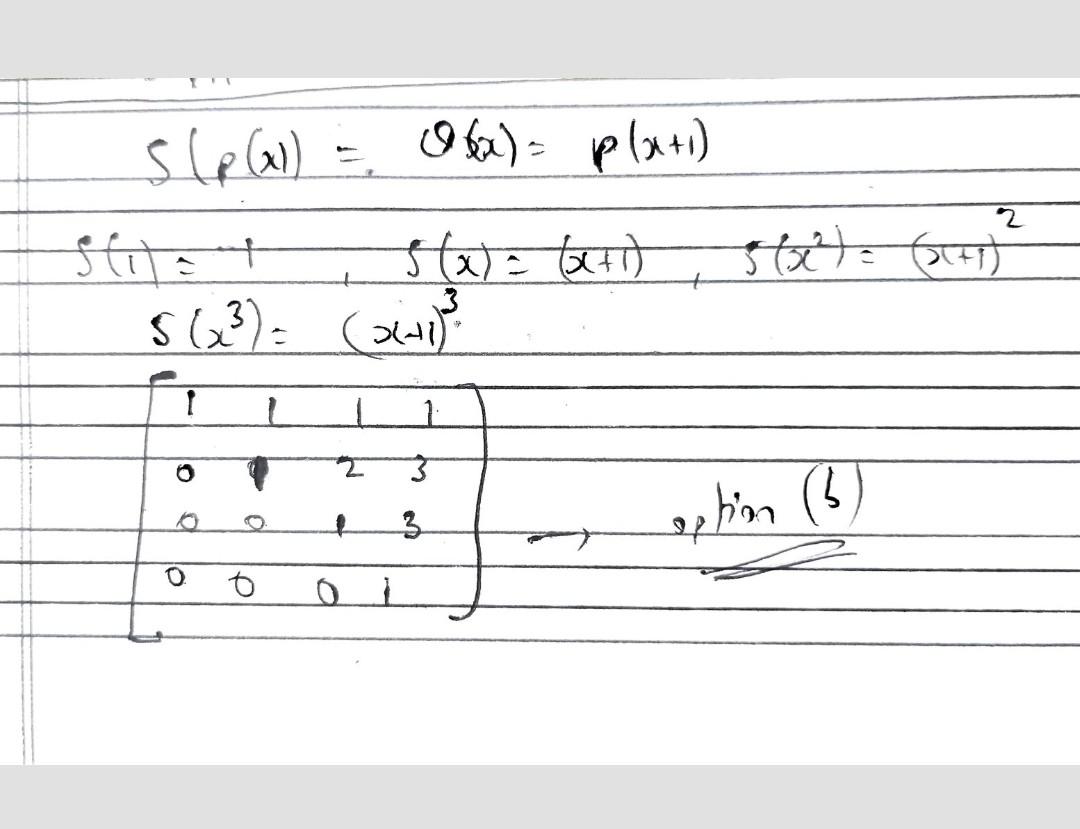 S(p(x)) = Q(x) = p(x+1)
S(1) = 1 , S(x) = (x+1) , S(x²) = (x+1)²
S(x³) = (x+1)³
1 1 1 1
0 1 2 3
0 0 1 3 → option (b)
0 0 0 1